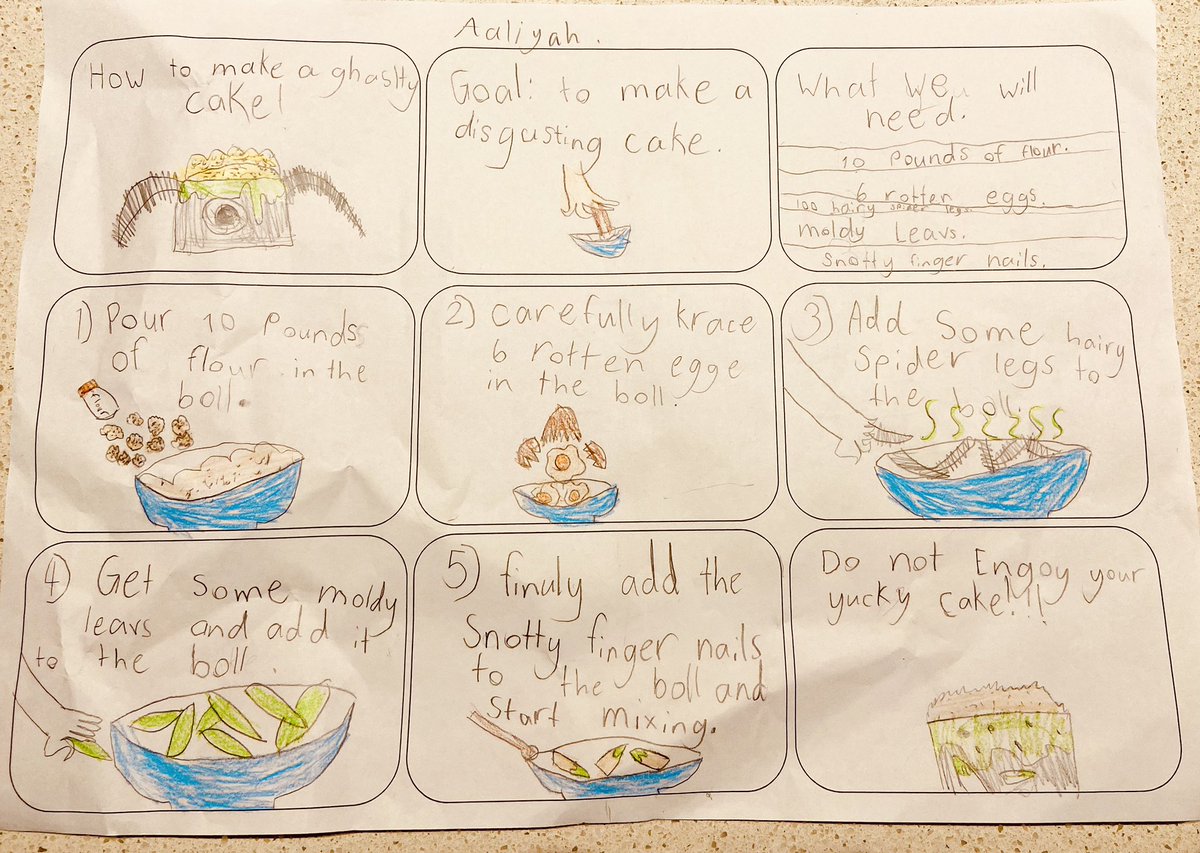 Aaliyah.
How to make a ghaslty
cake!
Goal: to make a
disgusting cake.
What We will
need.
10 Pounds of flour.
6 rotten eggs.
100 hairy spider legs.
moldy Leavs.
Snotty finger nails.
1) Pour 10 Pounds
of flour in the
boll.
flour
2) carefully krace
6 rotten egge
in the boll.
3) Add Some hairy
Spider legs to
the boll.
4) Get some moldy
leavs and add it
to the boll.
5) finuly add the
Snotty finger nails
to the boll and
Start mixing.
Do not Engoy your
yucky cake!!!